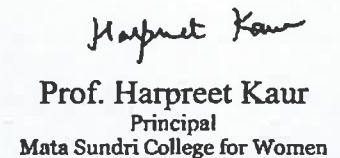 Harpreet Kaur
Prof. Harpreet Kaur
Principal
Mata Sundri College for Women